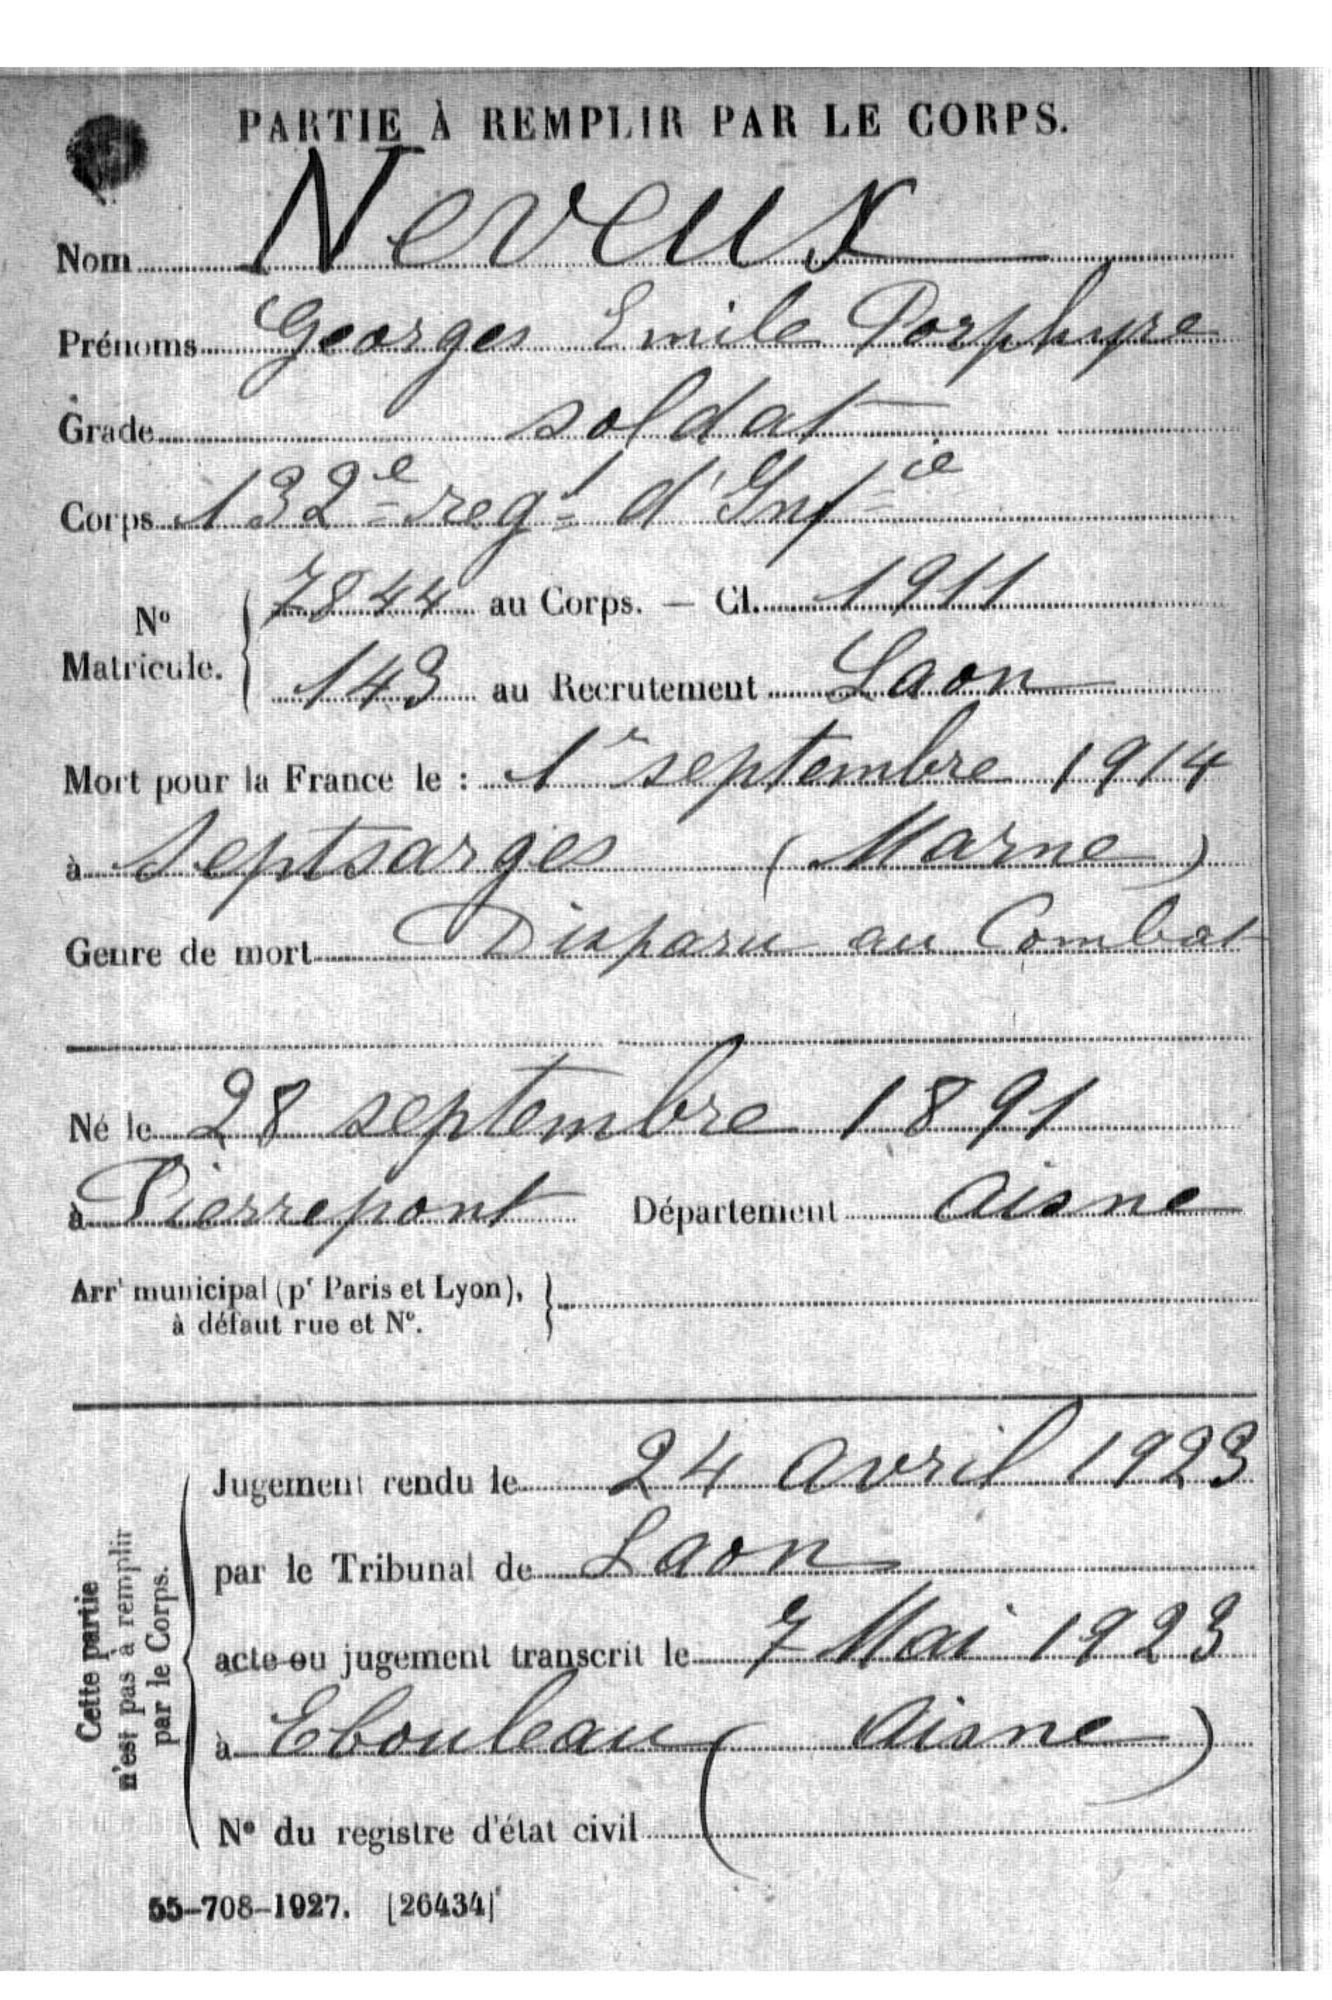 PARTIE À REMPLIR PAR LE CORPS.
Nom Neveux
Prénoms Georges Emile Porphyre
Grade soldat
Corps 132e regt d'Infie
No Matricule. 7844 au Corps. — Cl. 1911
143 au Recrutement Laon
Mort pour la France le : 1r septembre 1914
à Septsarges (Marne)
Genre de mort Disparu au Combat
Né le 28 septembre 1891
à Pierrepont Département Aisne
Arrt municipal (pr Paris et Lyon),
à défaut rue et No.
Cette partie
n'est pas à remplir
par le Corps.
Jugement rendu le 24 avril 1923
par le Tribunal de Laon
acte ou jugement transcrit le 7 Mai 1923
à Ebouleau (Aisne)
No du registre d'état civil
55-708-1927. [26434]